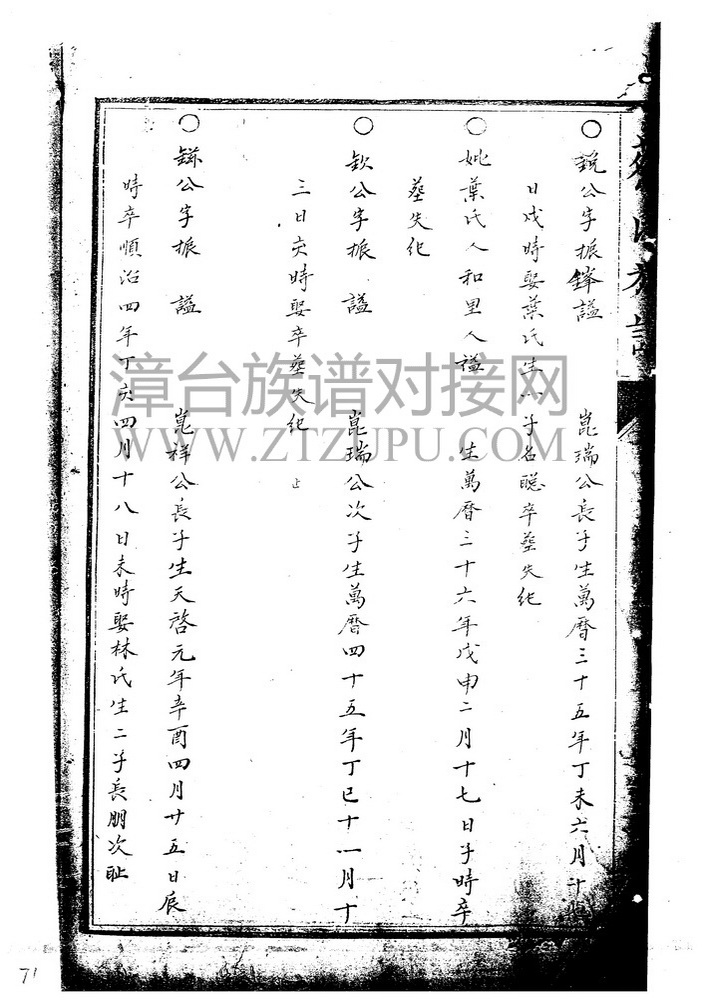 ○銳公字振鋒謚 崑瑞公長子生萬曆三十五年丁未六月十
日戌時娶葉氏生一子名聰卒塟失紀
○妣葉氏人和里人謚 生萬曆三十六年戊申二月十七日子時卒
塟失紀
○欽公字振 謚 崑瑞公次子生萬曆四十五年丁巳十一月十
三日亥時娶卒塟失紀 止
公字振 謚 崑祥公長子生天啓元年辛酉四月廿五日辰
時卒順治四年丁亥四月十八日未時娶林氏生二子長朋次耻
漳台族谱对接网
WWW.ZTZUPU.COM
71